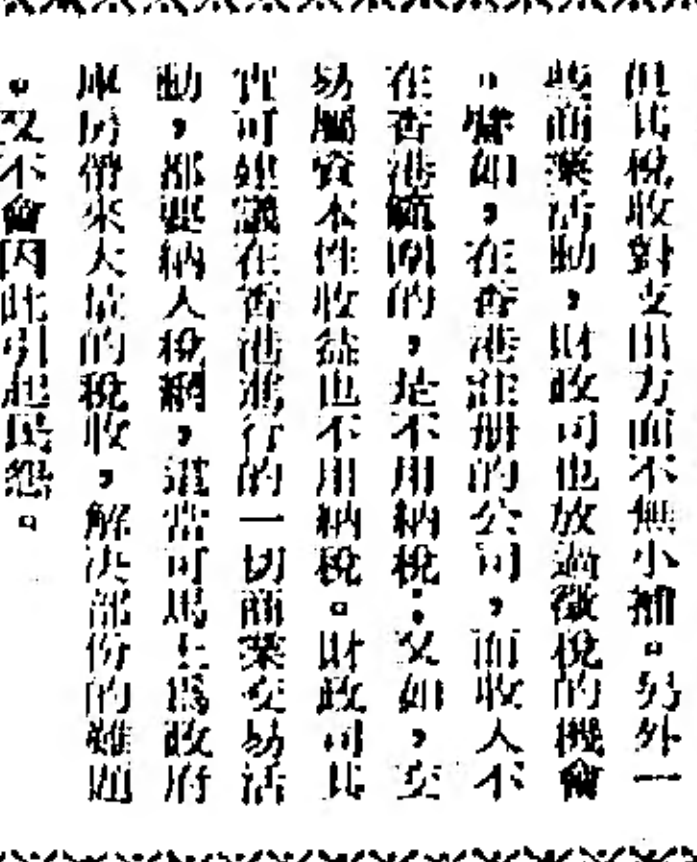 但其稅收對支出方面不無小補。另外一
些商業活動，財政司也放過徵稅的機會
。譬如，在香港註册的公司，而收入不
在香港範圍的，是不用納稅；又如，交
易屬資本性收益也不用納稅。財政司其
實可建議在香港進行的一切商業交易活
動，都要納入稅網，這當可馬上爲政府
庫房帶來大量的稅收，解决部份的難題
。又不會因此引起民怨。